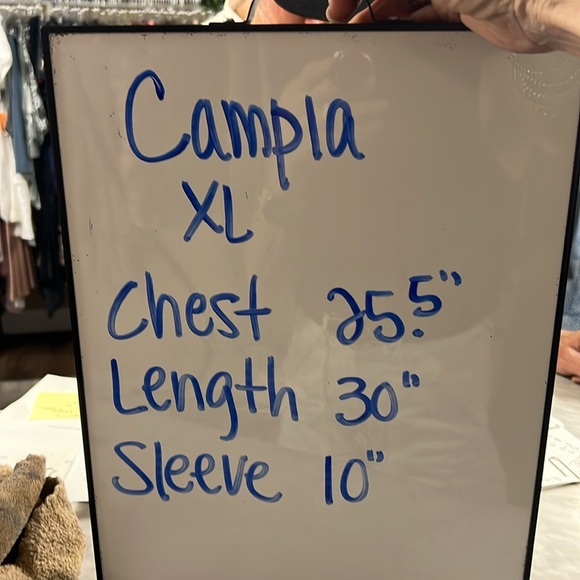 Campla
XL
Chest 25.5"
Length 30"
Sleeve 10"